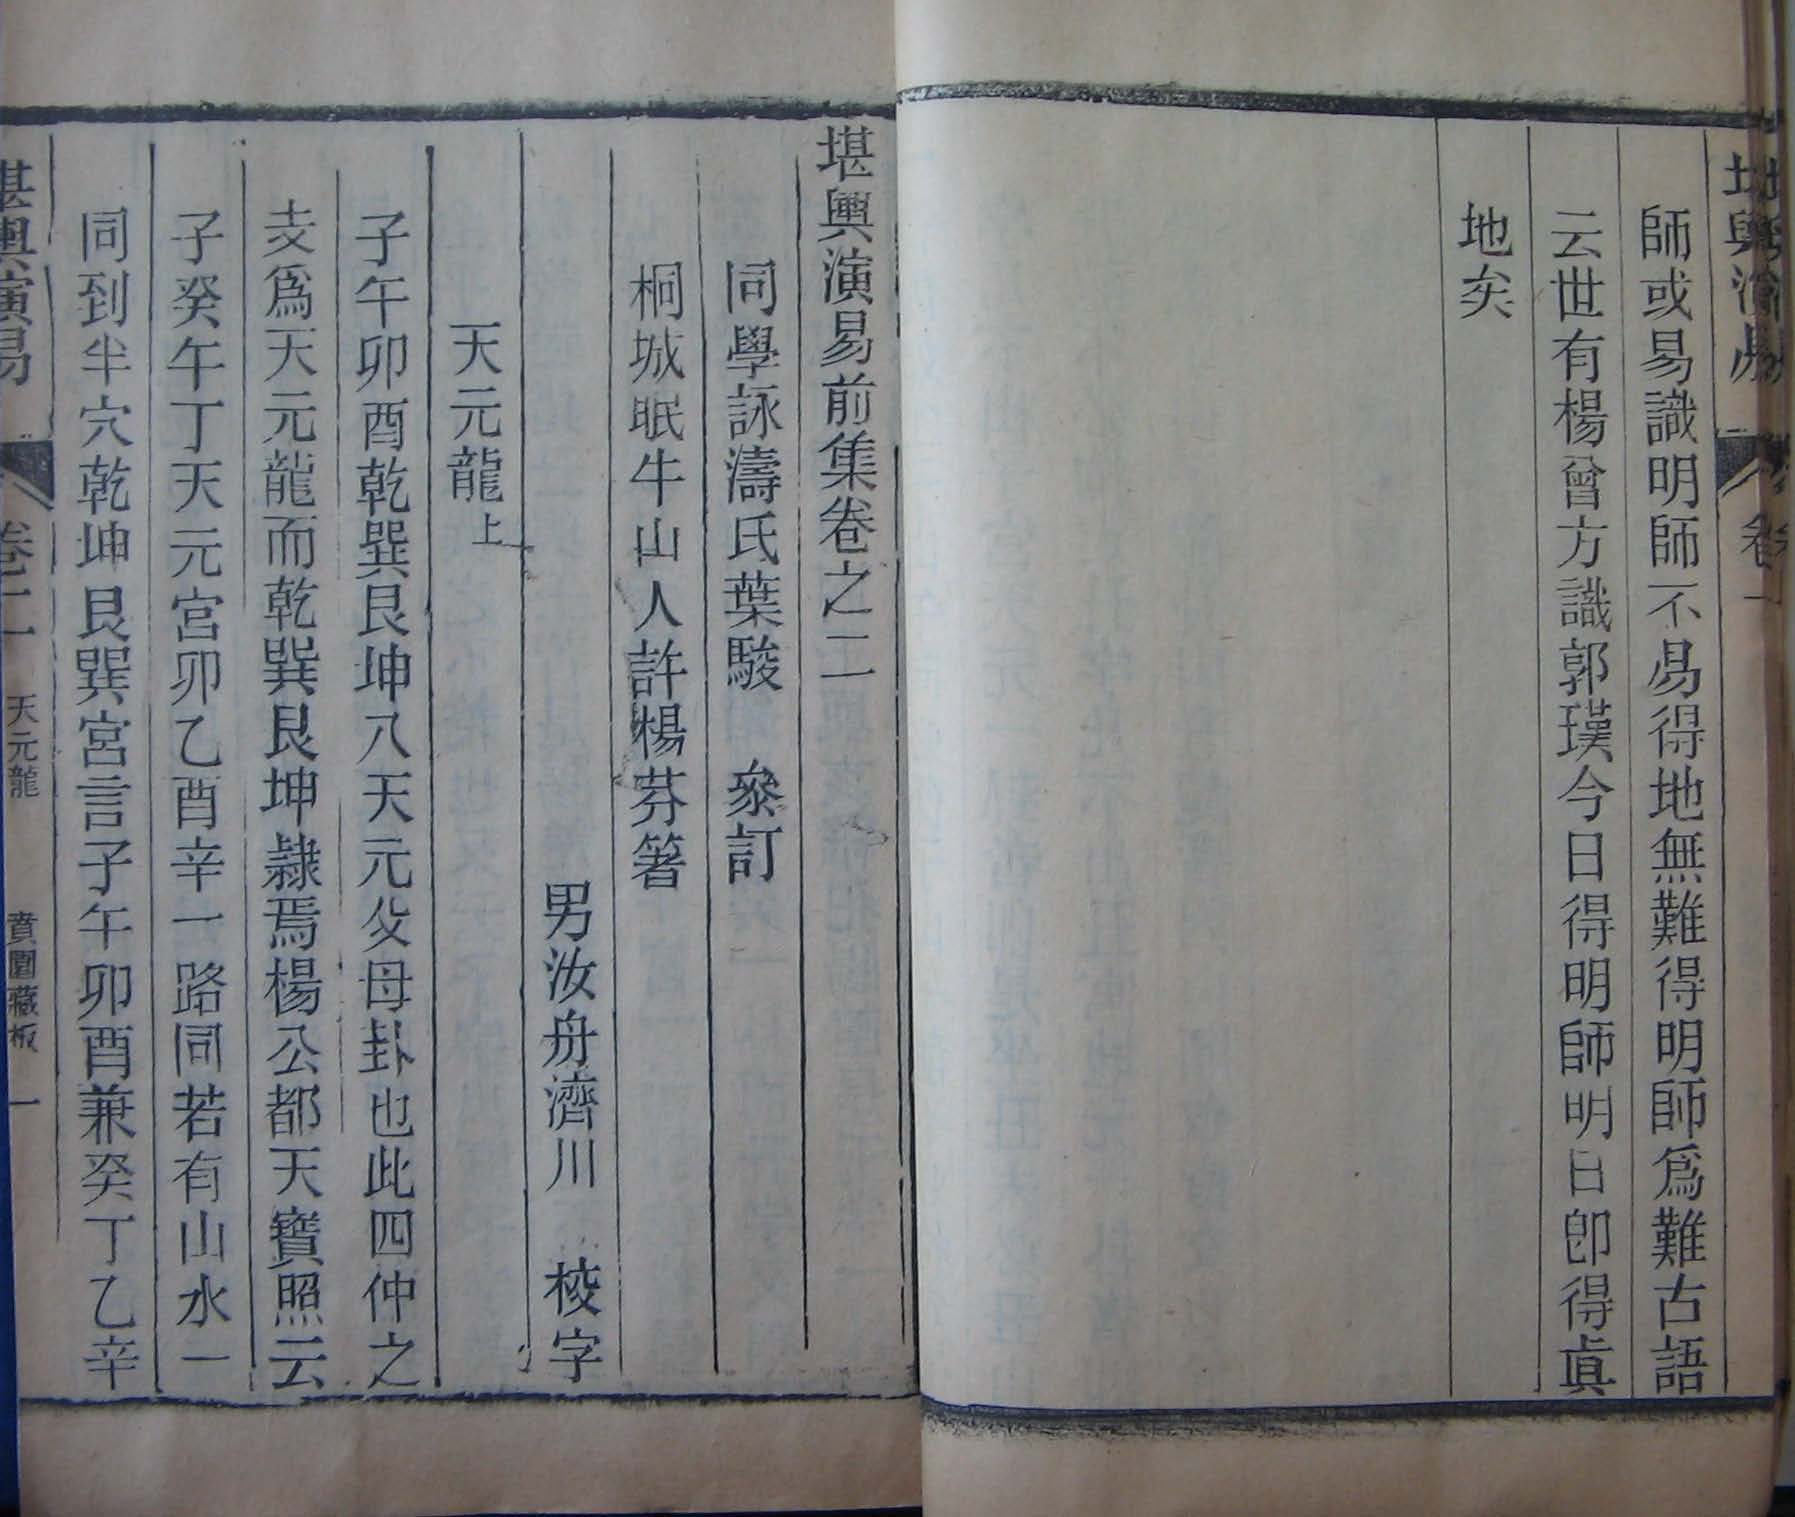 堪輿演易
卷一
師或易識明師不易得地無難得明師爲難古語
云世有楊曾方識郭璞今日得明師明日卽得眞
地矣
堪輿演易前集卷之二
同學詠濤氏葉駿 叅訂
桐城眠牛山人許楊芬箸
男汝舟濟川 校字
天元龍上
子午卯酉乾巽艮坤八天元父母卦也此四仲之
支爲天元龍而乾巽艮坤隷焉楊公都天寶照云
子癸午丁天元宮卯乙酉辛一路同若有山水一
同到半穴乾坤艮巽宮言子午卯酉兼癸丁乙辛
堪輿演易
卷二
天元龍
藏板
一